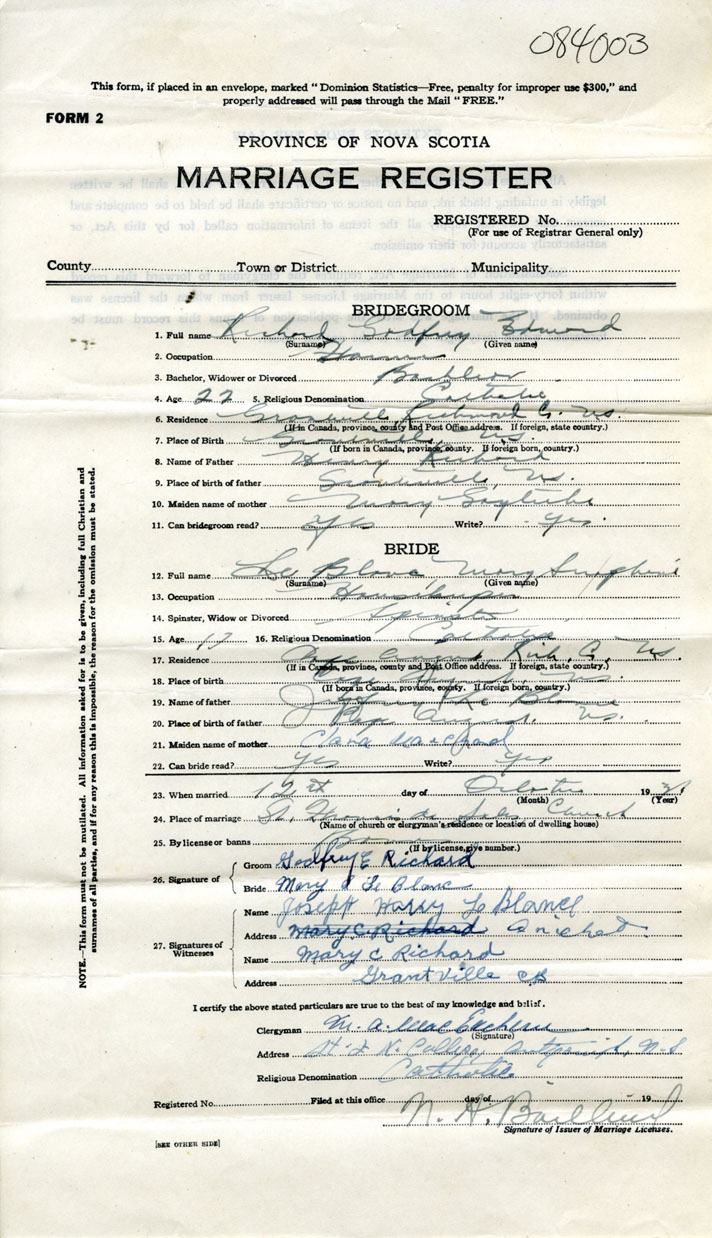 084003
This form, if placed in an envelope, marked "Dominion Statistics—Free, penalty for improper use $300," and
properly addressed will pass through the Mail "FREE."
FORM 2
PROVINCE OF NOVA SCOTIA
MARRIAGE REGISTER
REGISTERED No.
(For use of Registrar General only)
County Town or District Municipality
BRIDEGROOM
1. Full name Richard Godfrey Edward
(Surname) (Given name)
2. Occupation Farmer
3. Bachelor, Widower or Divorced Bachelor
4. Age 22 5. Religious Denomination Catholic
6. Residence Grantville Richmond Co. N.S.
(If in Canada, province, county and Post Office address. If foreign, state country.)
7. Place of Birth Grantville N.S.
(If born in Canada, province, county. If foreign born, country.)
8. Name of Father Henry Richard
9. Place of birth of father Grantville, N.S.
10. Maiden name of mother Mary
11. Can bridegroom read? Yes Write? Yes.
BRIDE
12. Full name Le Blanc Mary
(Surname) (Given name)
13. Occupation Housekeeper
14. Spinster, Widow or Divorced Spinster
15. Age 17 16. Religious Denomination Catholic
17. Residence Cape August Rich. Co. N.S.
(If in Canada, province, county and Post Office address. If foreign, state country.)
18. Place of birth Cape August, N.S.
(If born in Canada, province, county. If foreign born, country.)
19. Name of father Le Blanc
20. Place of birth of father Cape August. N.S.
21. Maiden name of mother Clara
22. Can bride read? Yes Write? Yes
23. When married 12 day of October 19
(Month) (Year)
24. Place of marriage St. Francis de Sales Church
(Name of church or clergyman's residence or location of dwelling house)
25. By license or banns
(If by license, give number.)
26. Signature of
Groom Godfrey E Richard
Bride Mary S Le Blanc
27. Signatures of Witnesses
Name Joseph Harry Le Blance
Address Mary C. Richard
Name Mary C Richard
Address Grantville CB
I certify the above stated particulars are true to the best of my knowledge and belief.
Clergyman M. A. MacEachern
(Signature)
Address St. F. X. College, Antigonish, N.S
Religious Denomination Catholic
Registered No. Filed at this office day of 19
N. H.
Signature of Issuer of Marriage Licenses.
[SEE OTHER SIDE]
NOTE.—This form must not be mutilated. All information asked for is to be given, including full Christian and
surnames of all parties, and if for any reason this is impossible, the reason for the omission must be stated.